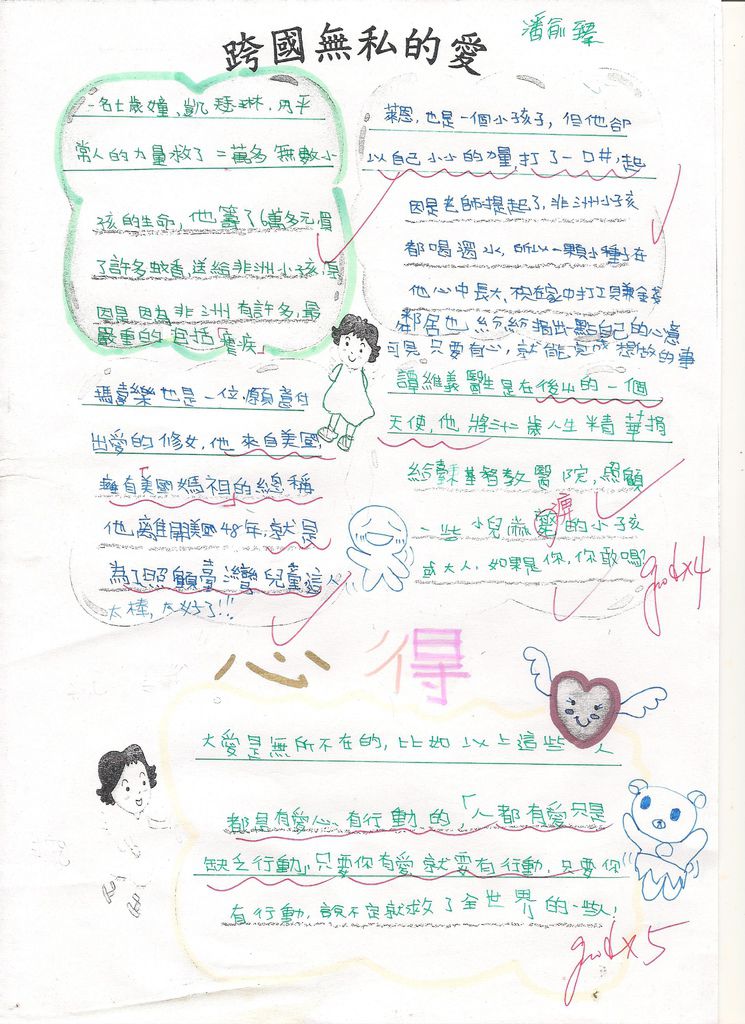 跨國無私的愛
潘俞臻
一名七歲女童、凱瑟琳、用平
常人的力量救了二萬多無數小
孩的生命，他籌了6萬多元，買
了許多蚊香，送給非洲小孩，原
因是因為非洲有許多，最
嚴重的包括「瘧疾」
萊恩，也是一個小孩子，但他卻
以自己小小的力量，打了一口井，起
因是老師提起了，非洲小孩
都喝濁水，所以一顆小種子在
他心中長大，在家中打工具賺金錢
鄰居也紛紛捐出一點自己的心意
可見只要有心，就能完成想做的事
瑪喜樂也是一位，願意付
出愛的修女，他來自美國，
擁有「美國媽祖的總稱」
他離開美國48年，就是
為了照顧臺灣兒童這人
太棒，太好了!!!
譚維義醫生是在後山的一個
天使，他將三十二歲人生精華捐
給臺東基督教醫院，照顧
一些小兒麻痺的小孩
或大人，如果是你，你敢嗎?
good×4
心得
大愛是無所不在的，比如以上這些人
都是有愛心、有行動的，「人都有愛只是
缺乏行動」，只要你有愛，就要有行動，只要你
有行動，說不定就救了全世界的一些人!
good×5